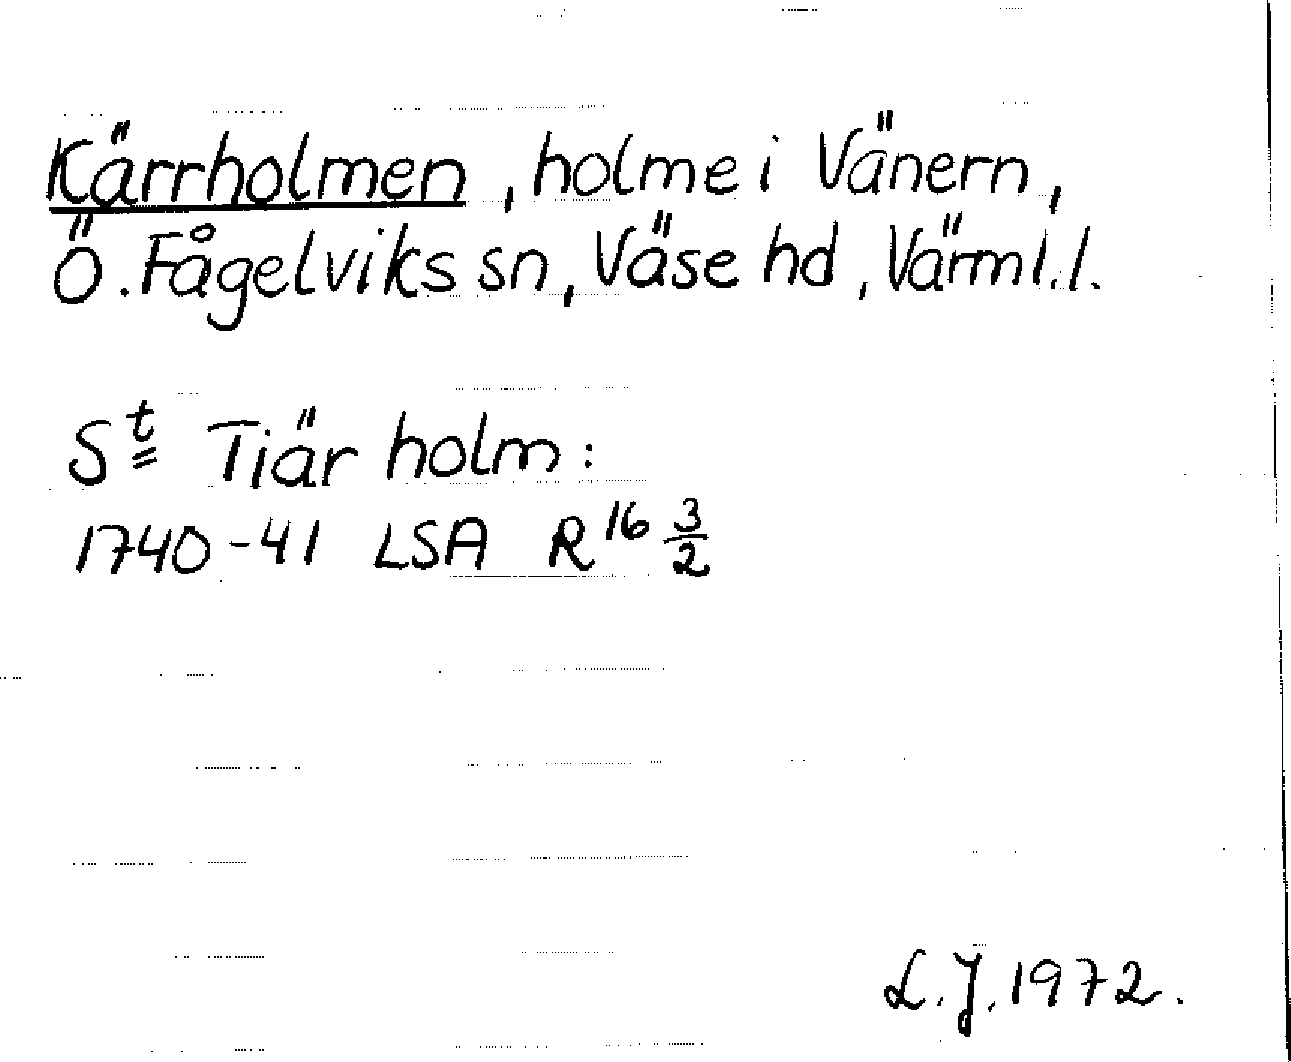 Kärrholmen, holme i Vänern,
Ö. Fågelviks sn, Väse hd, Värml. l.
St Tiär holm:
1740-41 LSA R16 3/2
L. J. 1972.